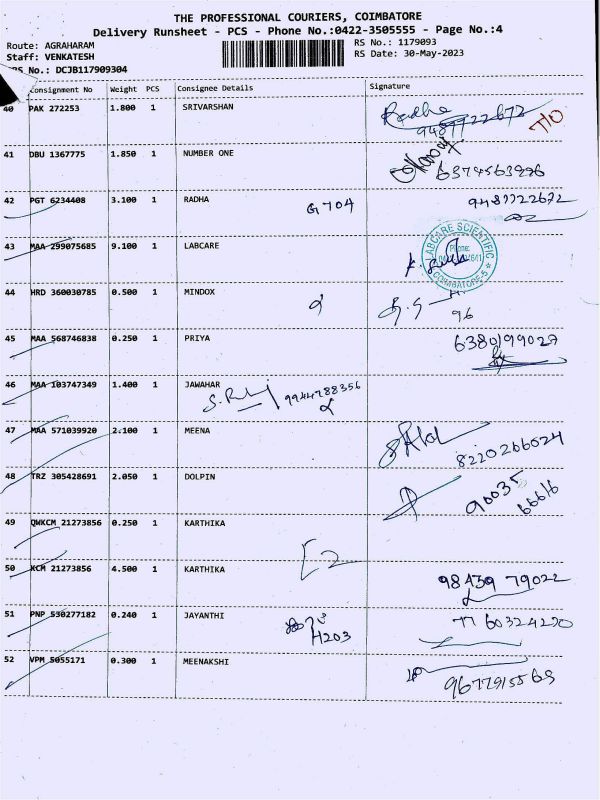 THE PROFESSIONAL COURIERS, COIMBATORE
Delivery Runsheet - PCS - Phone No.:0422-3505555 - Page No.:4
Route: AGRAHARAM RS No.: 1179093
Staff: VENKATESH RS Date: 30-May-2023
RS No.: DCJB117909304
Consignment No Weight PCS Consignee Details Signature
40 PAK 272253 1.800 1 SRIVARSHAN Radha
41 DBU 1367775 1.850 1 NUMBER ONE
6374563996
42 PGT 6234408 3.100 1 RADHA G704 9487722672
43 MAA 299075685 9.100 1 LABCARE
LABCARE SCIENTIFIC
Phone:
COIMBATORE-5
44 HRD 360030785 0.500 1 MINDOX
96
45 MAA 568746838 0.250 1 PRIYA 6380199027
46 MAA 103747349 1.400 1 JAWAHAR 9944788356
47 MAA 571039920 2.100 1 MEENA
8220266024
48 TRZ 305428691 2.050 1 DOLPIN 90035
66616
49 QWKCM 21273856 0.250 1 KARTHIKA
50 KCM 21273856 4.500 1 KARTHIKA
98439 79022
51 PNP 530277182 0.240 1 JAYANTHI 7760324220
H203
52 VPM 5055171 0.300 1 MEENAKSHI